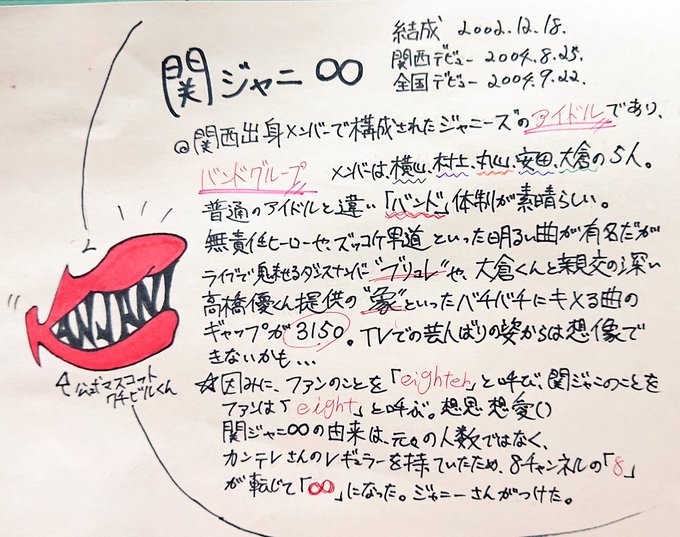 結成 2002.12.18.
関西デビュー 2004.8.25.
全国デビュー 2004.9.22.
関ジャニ∞
@関西出身メンバーで構成されたジャニーズのアイドルであり、
バンドグループ メンバーは、横山、村上、丸山、安田、大倉の5人。
普通のアイドルと違い「バンド」体制が素晴らしい。
無責任ヒーローや、ズッコケ男道といった明るい曲が有名だが
ライブで魅せるダンスナンバー"ブリュレ"や、大倉くんと親交の深い
高橋優くん提供の"象"といったバチバチにキメる曲の
ギャップが3150。TVでの芸人ばりの姿からは想像で
きないかも...
☆因みに、ファンのことを「eighter」と呼び、関ジャニのことを
ファンは「eight」と呼ぶ。想思想愛()
関ジャニ∞の由来は、元々の人数ではなく、
カンテレさんのレギュラーを持っていたため、8チャンネルの「8」
が転じて「∞」になった。ジャニーさんがつけた。
KANJANI
公式マスコット
クチビルくん